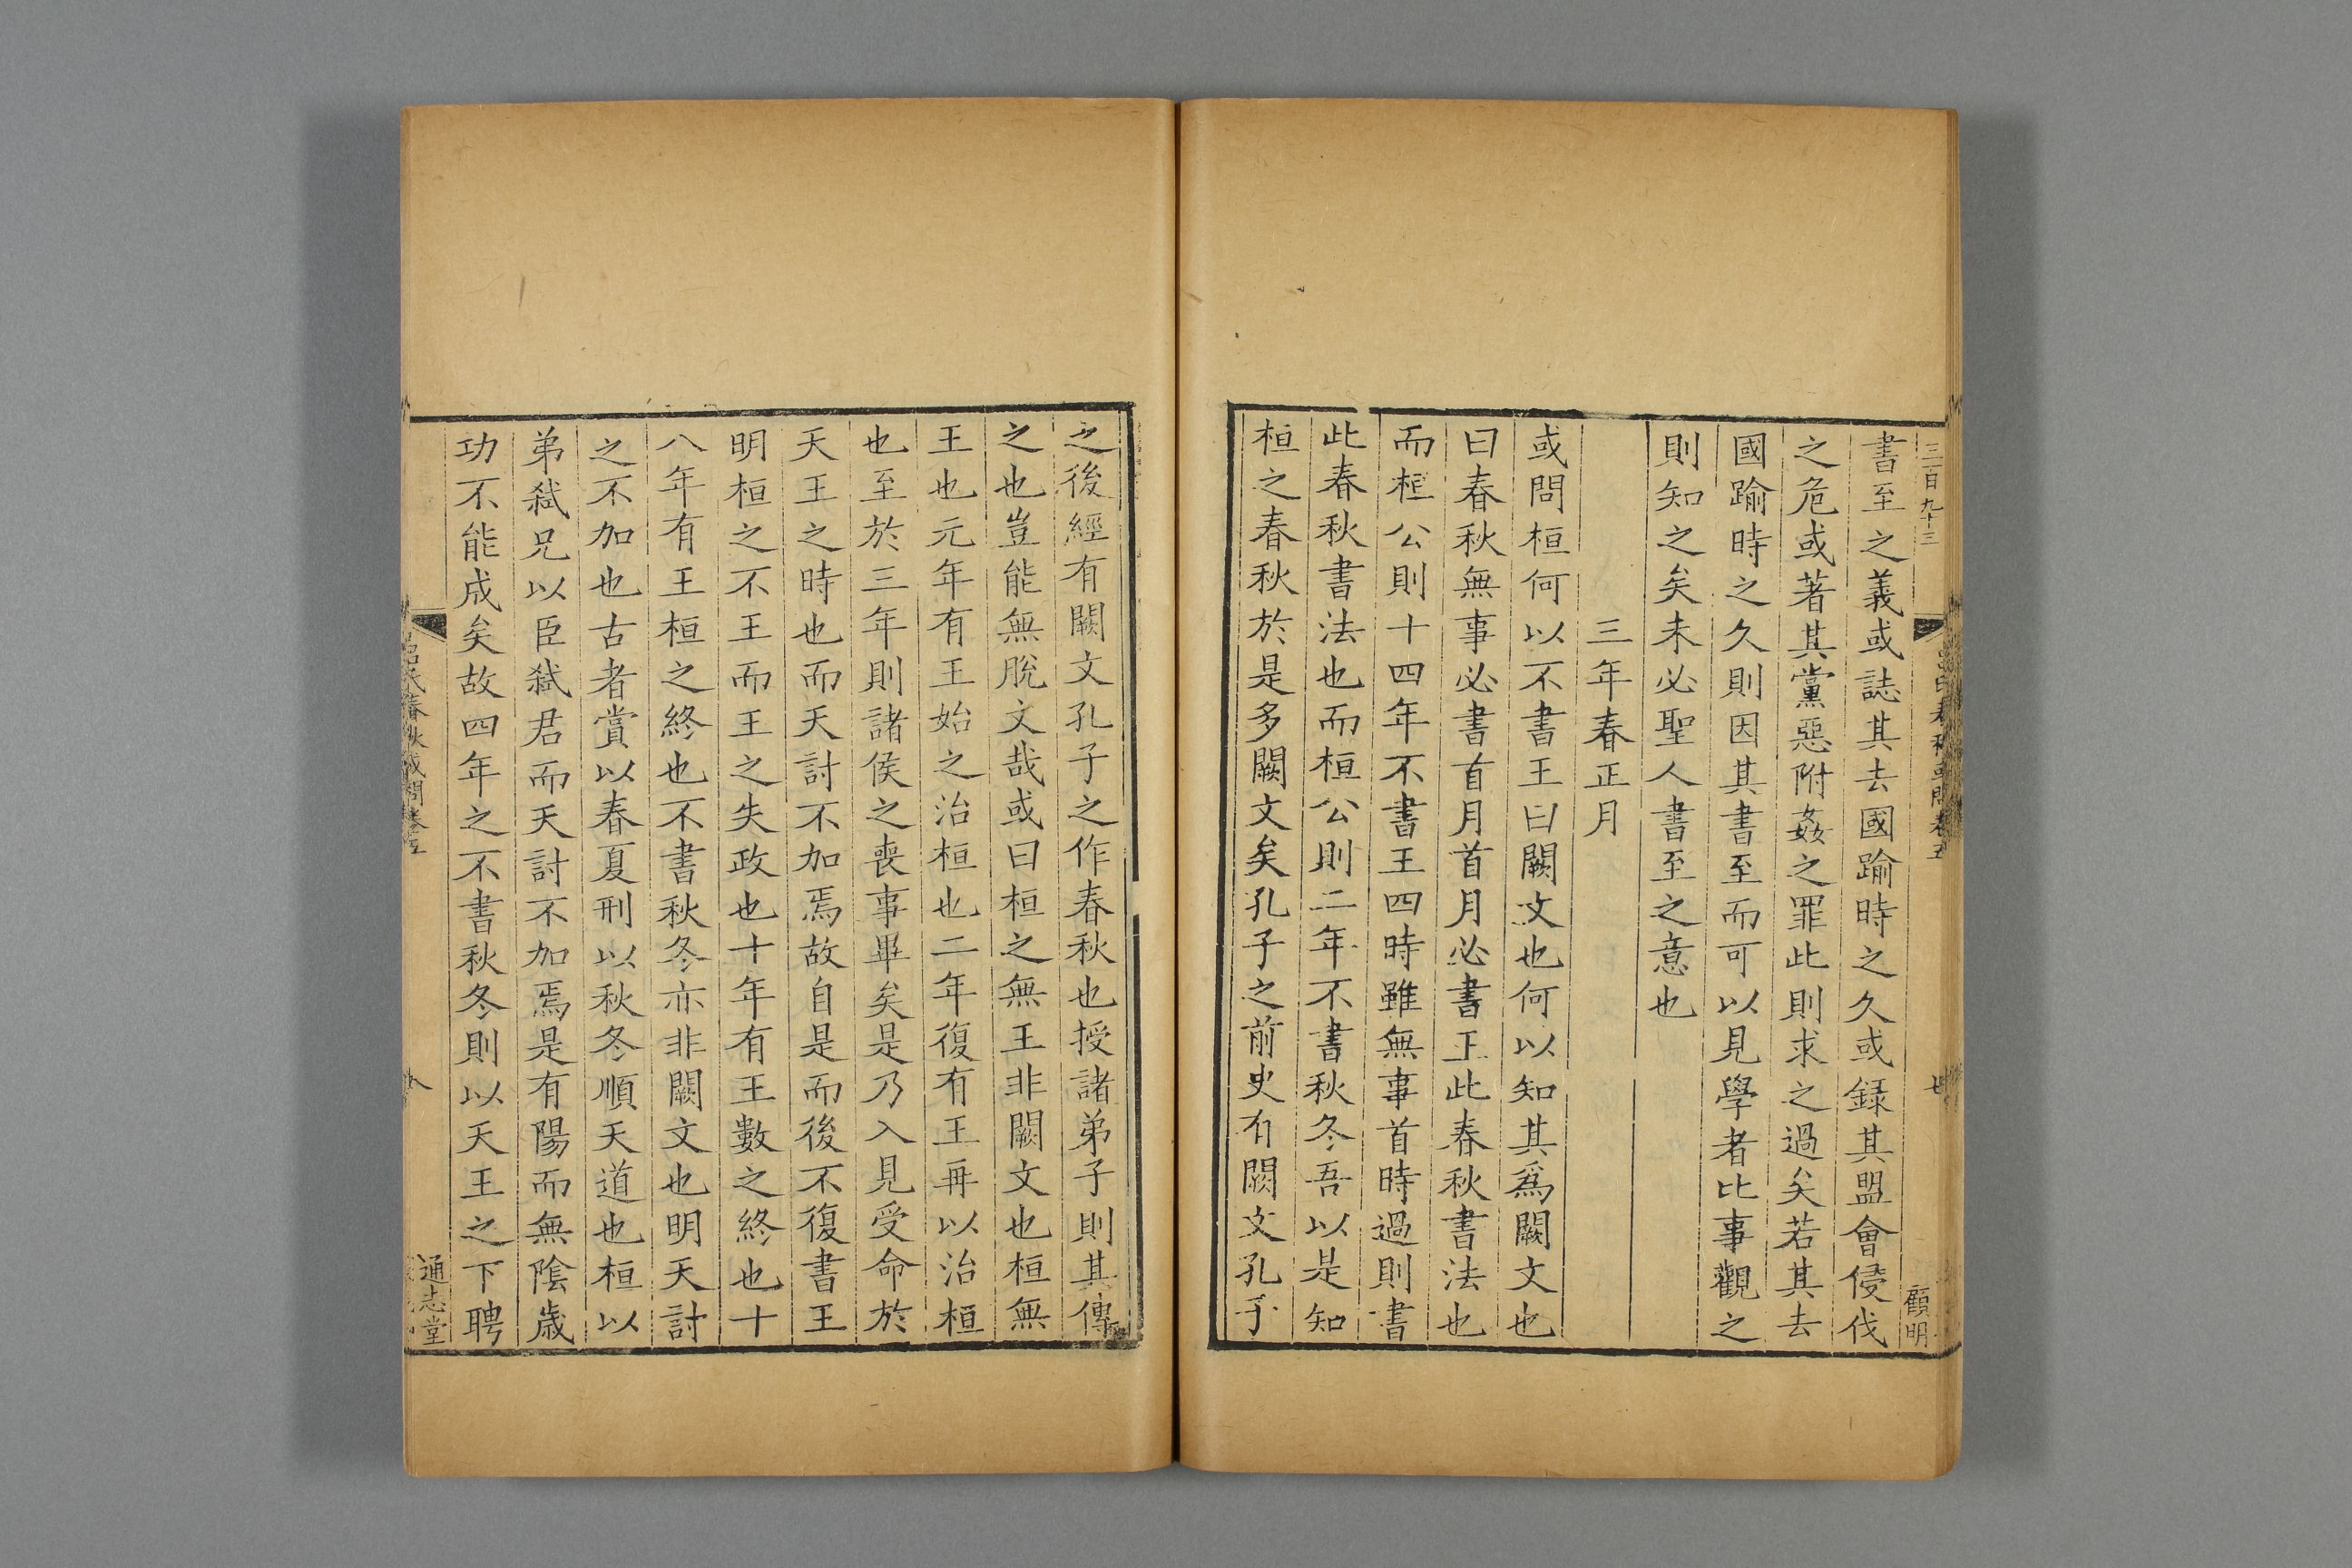 三百九十三
顧明
書至之義或誌其去國踰時之久或録其盟會侵伐
之危或著其黨惡附姦之罪此則求之過矣若其去
國踰時之久則因其書至而可以見學者比事觀之
則知之矣未必聖人書至之意也
三年春正月
或問桓何以不書王曰闕文也何以知其爲闕文也
曰春秋無事必書首月首月必書王此春秋書法也
而桓公則十四年不書王四時雖無事首時過則書
此春秋書法也而桓公則二年不書秋冬吾以是知
桓之春秋於是多闕文矣孔子之前史有闕文孔子
之後經有闕文孔子之作春秋也授諸弟子則其傳
之也豈能無脫文哉或曰桓之無王非闕文也桓無
王也元年有王始之治桓也二年復有王再以治桓
也至於三年則諸侯之喪事畢矣是乃入見受命於
天王之時也而天討不加焉故自是而後不復書王
明桓之不王而王之失政也十年有王數之終也十
八年有王桓之終也不書秋冬亦非闕文也明天討
之不加也古者賞以春夏刑以秋冬順天道也桓以
弟弑兄以臣弑君而天討不加焉是有陽而無陰歲
功不能成矣故四年之不書秋冬則以天王之下聘
呂氏春秋或問卷五
通志堂